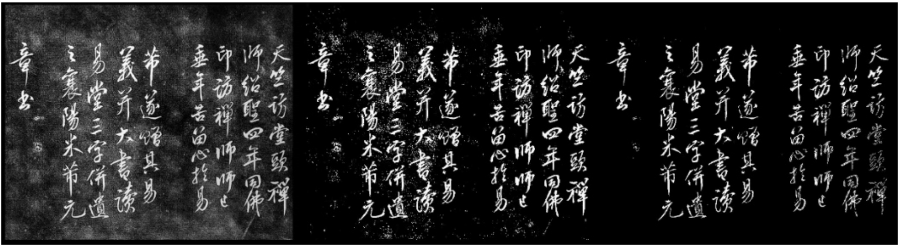 天竺訪堂頭禪
師紹聖四年同佛
印訪禪師師已
垂年苦留心於易
芾遂贈具易
義并大書讀
易堂三字併遺
之襄陽米芾元
章書
天竺訪堂頭禪
師紹聖四年同佛
印訪禪師師已
垂年苦留心於易
芾遂贈具易
義并大書讀
易堂三字併遺
之襄陽米芾元
章書
天竺訪堂頭禪
師紹聖四年同佛
印訪禪師師已
垂年苦留心於易
芾遂贈具易
義并大書讀
易堂三字併遺
之襄陽米芾元
章書